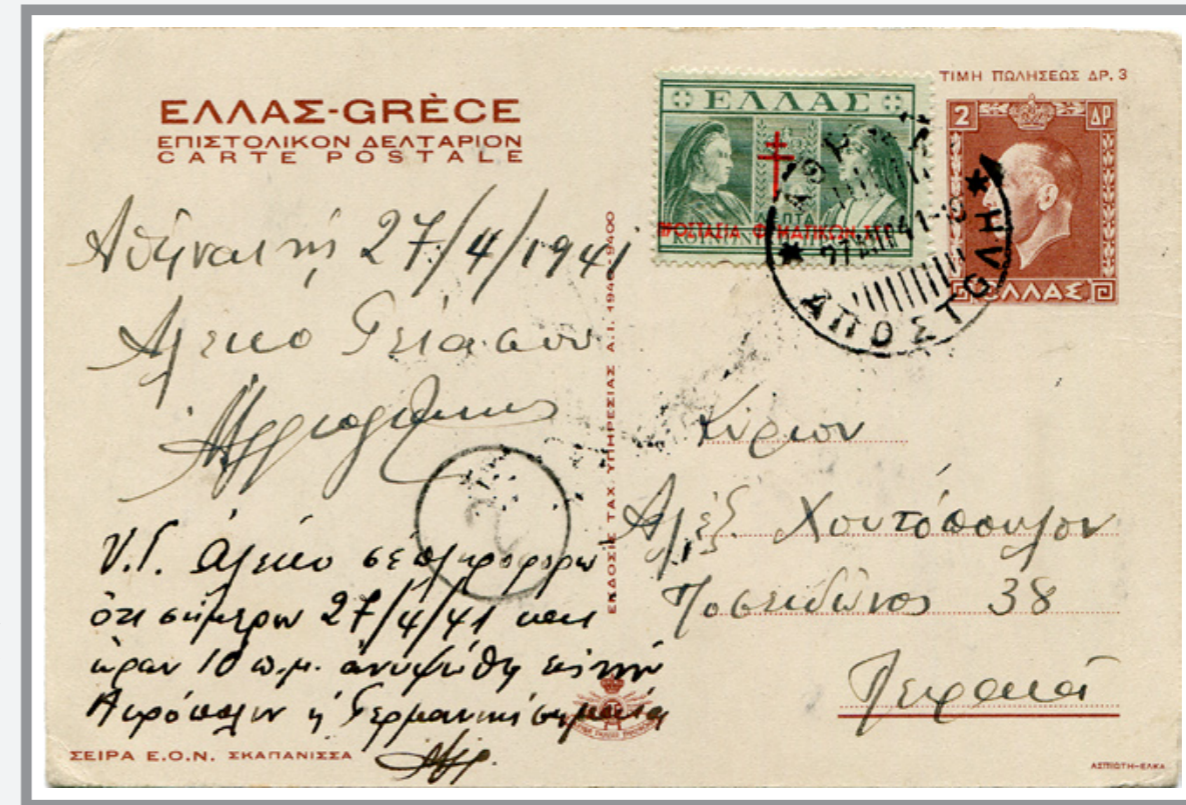 ΕΛΛΑΣ-GRÈCE
ΕΠΙΣΤΟΛΙΚΟΝ ΔΕΛΤΑΡΙΟΝ
CARTE POSTALE
ΤΙΜΗ ΠΩΛΗΣΕΩΣ ΔΡ. 3
2 ΔΡ
ΕΛΛΑΣ
ΕΛΛΑΣ
ΠΡΟΣΤΑΣΙΑ ΦΥΜΑΤΙΚΩΝ
27 ΑΠΡ 41
ΑΠΟΣΤΟΛΗ
Ἀθῆναι τῇ 27/4/1941
Ἀλέκο Γειά σου
Υ.Γ. Ἀλέκο σὲ πληροφορῶ
ὅτι σήμερον 27/4/41 και
ὥραν 10 π.μ. ἀνυψώθη εἰς τὴν
Ἀκρόπολιν ἡ Γερμανική σημαία
ΕΚΔΟΣΙΣ ΤΑΧ. ΥΠΗΡΕΣΙΑΣ Α.Ι. 1940-9400
Κύριον
Ἀλέξ. Χουτόπουλον
Ποσειδῶνος 38
Πειραιᾶ
ΣΕΙΡΑ Ε.Ο.Ν. ΣΚΑΠΑΝΙΣΣΑ
ΑΣΠΙΩΤΗ-ΕΛΚΑ